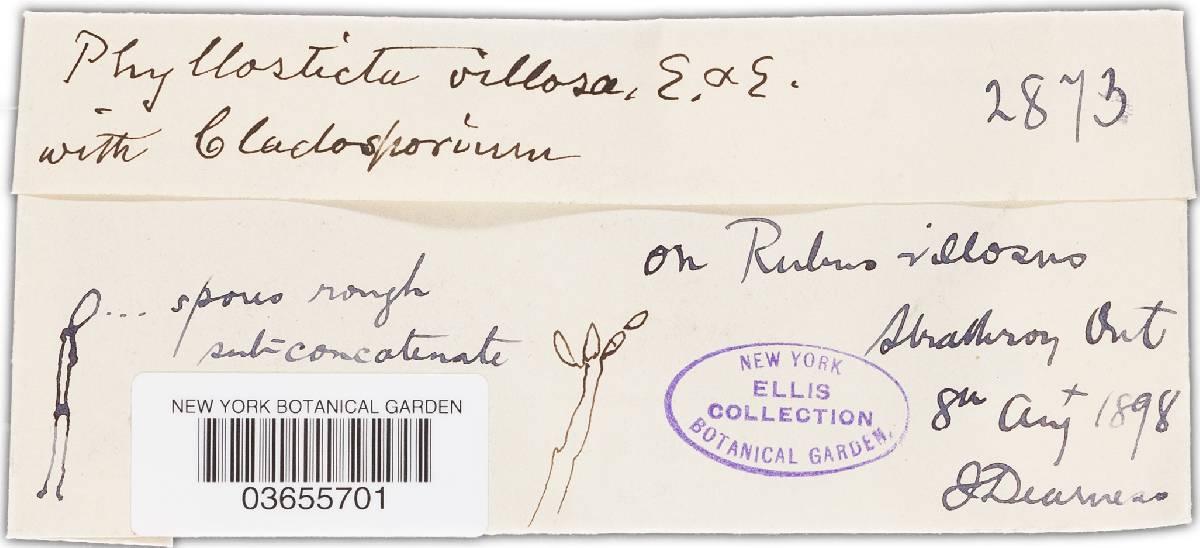 Phyllosticta villosa, E. & E.
with Cladosporium
2873
on Rubus villosus
... spores rough
sub-concatenate
Strathroy Ont
8th Augt 1898
J Dearness
NEW YORK
ELLIS
COLLECTION
BOTANICAL GARDEN.
NEW YORK BOTANICAL GARDEN
03655701